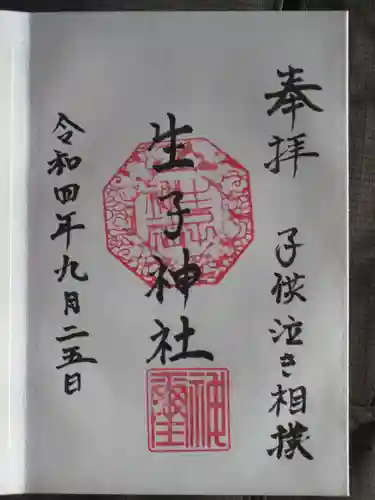 奉拝
子供泣き相撲
生子神社
令和四年九月二五日